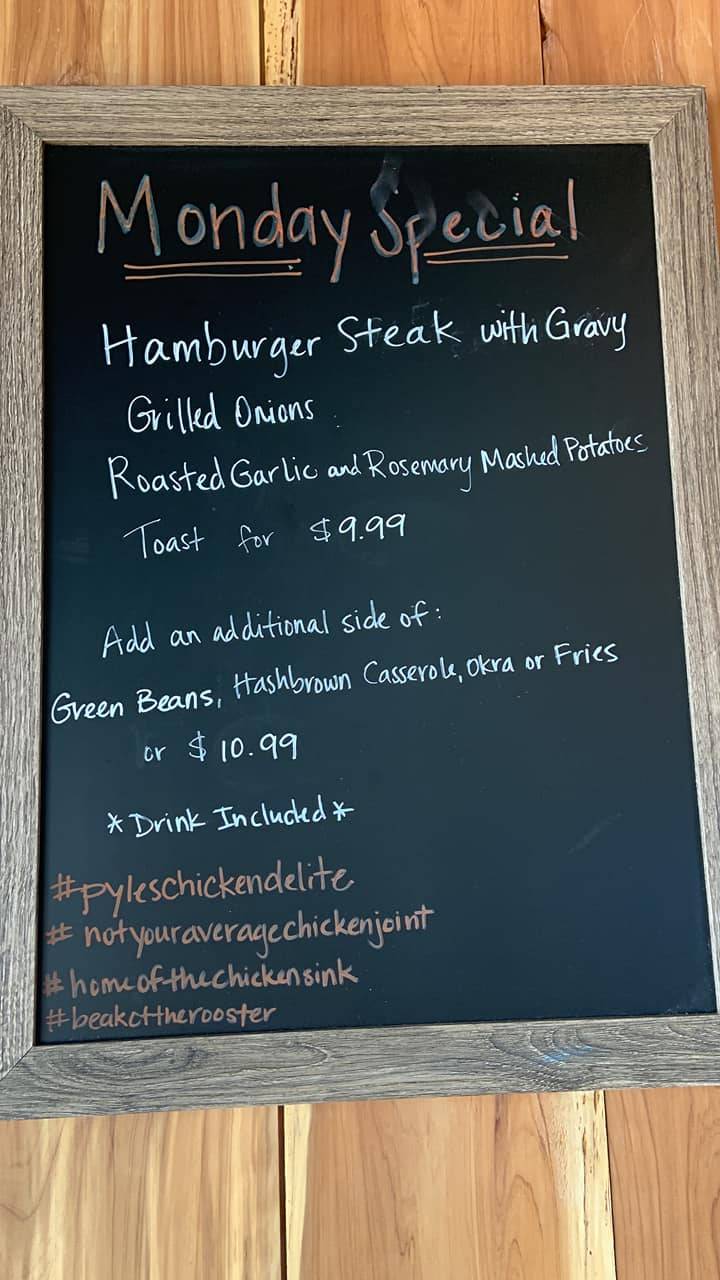 Monday Special
Hamburger Steak with Gravy
Grilled Onions
Roasted Garlic and Rosemary Mashed Potatoes
Toast for $9.99
Add an additional side of:
Green Beans, Hashbrown Casserole, Okra or Fries
or $10.99
*Drink Included*
#pyleschickendelite
#notyouraveragechickenjoint
#homeofthechickensink
#beakoftherooster